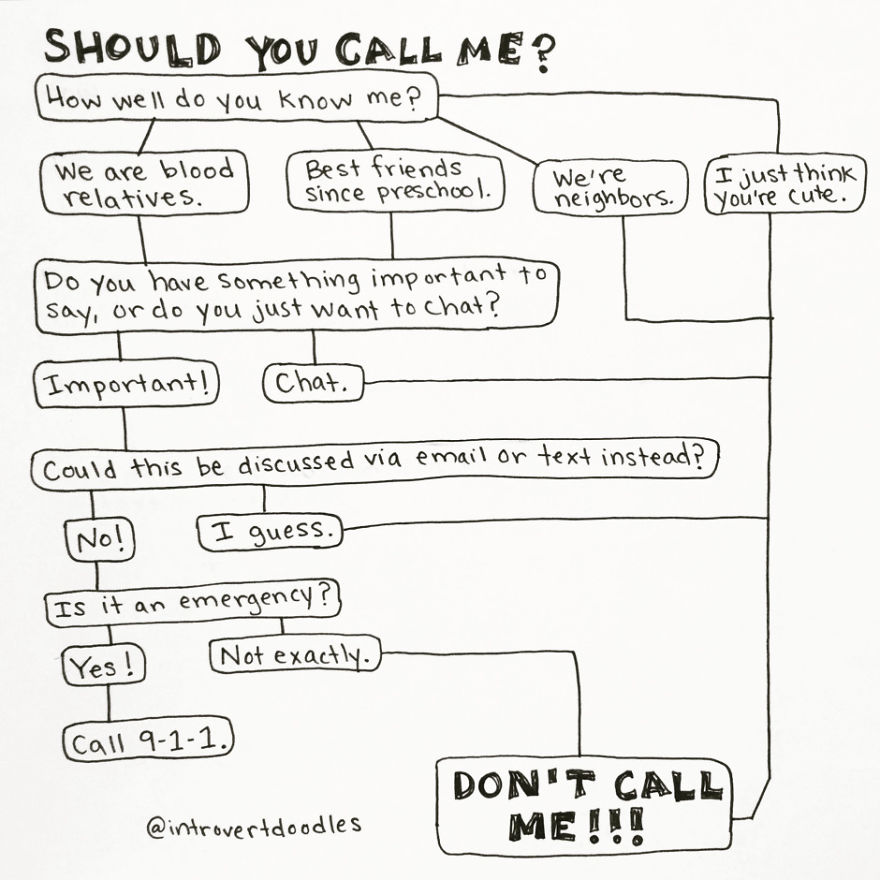 SHOULD YOU CALL ME?
How well do you know me?
We are blood
relatives.
Best friends
since preschool.
We're
neighbors.
I just think
you're cute.
Do you have something important to
say, or do you just want to chat?
Important!
Chat.
Could this be discussed via email or text instead?
No!
I guess.
Is it an emergency?
Yes!
Not exactly.
Call 9-1-1.
DON'T CALL
ME!!!
@introvertdoodles